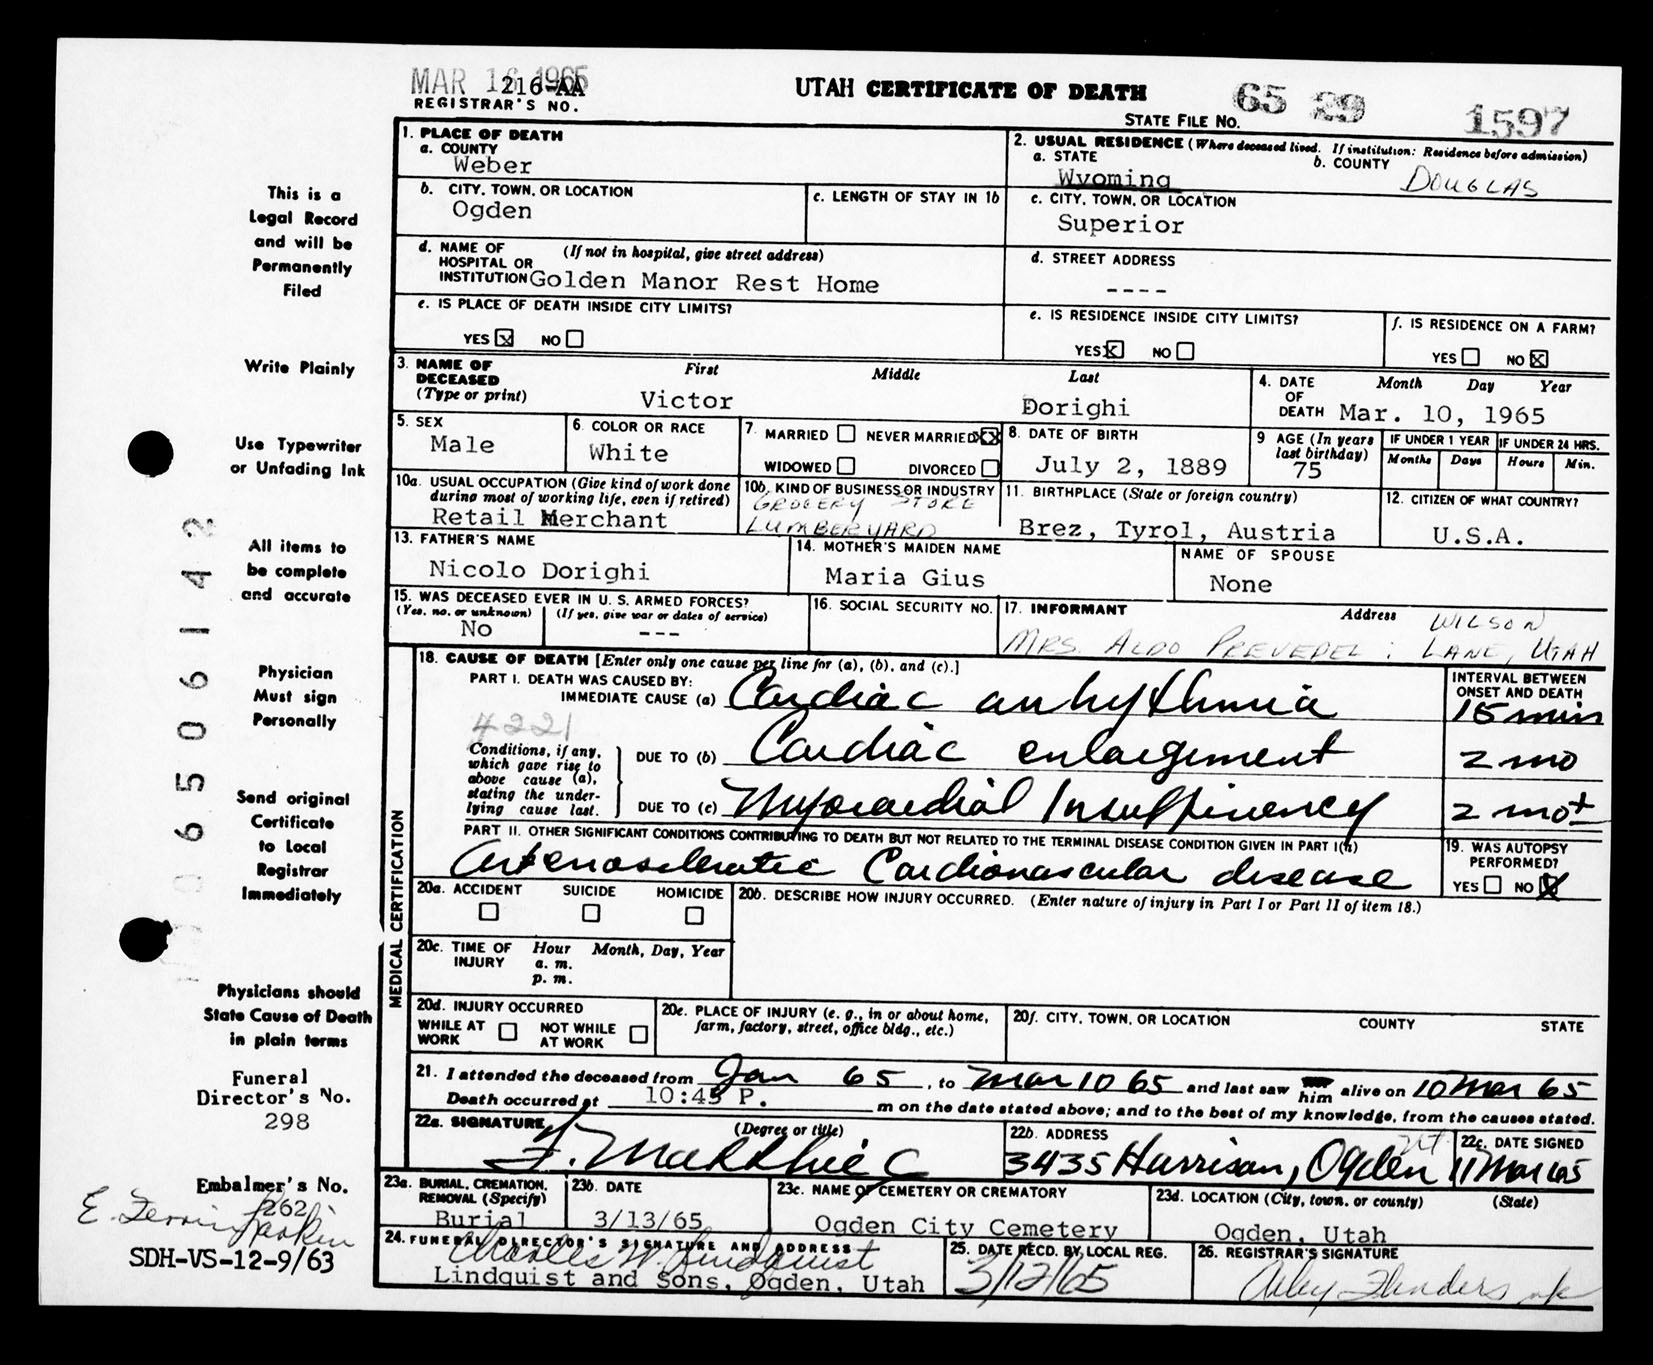 MAR 16 1965
216-AA
REGISTRAR'S NO.
UTAH CERTIFICATE OF DEATH
STATE FILE NO. 65 29 1597
This is a
Legal Record
and will be
Permanently
Filed
Write Plainly
Use Typewriter
or Unfading Ink
All items to
be complete
and accurate
Physician
Must sign
Personally
Send original
Certificate
to Local
Registrar
Immediately
Physicians should
State Cause of Death
in plain terms
Funeral
Director's No.
298
Embalmer's No.
262
E. Ferrin Larkin
SDH-VS-12-9/63
6506142
1. PLACE OF DEATH
a. COUNTY
Weber
2. USUAL RESIDENCE (Where deceased lived. If institution: Residence before admission)
a. STATE
Wyoming
b. COUNTY
DOUGLAS
b. CITY, TOWN, OR LOCATION
Ogden
c. LENGTH OF STAY IN 1b
c. CITY, TOWN, OR LOCATION
Superior
d. NAME OF (If not in hospital, give street address)
HOSPITAL OR
INSTITUTION Golden Manor Rest Home
d. STREET ADDRESS
----
e. IS PLACE OF DEATH INSIDE CITY LIMITS?
YES X NO
e. IS RESIDENCE INSIDE CITY LIMITS?
YES X NO
f. IS RESIDENCE ON A FARM?
YES NO X
3. NAME OF
DECEASED
(Type or print)
First Middle Last
Victor Dorighi
4. DATE
OF
DEATH
Month Day Year
Mar. 10, 1965
5. SEX
Male
6. COLOR OR RACE
White
7. MARRIED NEVER MARRIED X
WIDOWED DIVORCED
8. DATE OF BIRTH
July 2, 1889
9 AGE (In years
last birthday)
75
IF UNDER 1 YEAR
Months Days
IF UNDER 24 HRS.
Hours Min.
10a. USUAL OCCUPATION (Give kind of work done
during most of working life, even if retired)
Retail Merchant
10b. KIND OF BUSINESS OR INDUSTRY
GROCERY STORE
LUMBERYARD
11. BIRTHPLACE (State or foreign country)
Brez, Tyrol, Austria
12. CITIZEN OF WHAT COUNTRY?
U.S.A.
13. FATHER'S NAME
Nicolo Dorighi
14. MOTHER'S MAIDEN NAME
Maria Gius
NAME OF SPOUSE
None
15. WAS DECEASED EVER IN U. S. ARMED FORCES?
(Yes, no, or unknown) (If yes, give war or dates of service)
No ---
16. SOCIAL SECURITY NO.
17. INFORMANT Address
MRS. ALDO PREVEDEL; WILSON
LANE, UTAH
MEDICAL CERTIFICATION
18. CAUSE OF DEATH [Enter only one cause per line for (a), (b), and (c).]
PART I. DEATH WAS CAUSED BY:
IMMEDIATE CAUSE (a) Cardiac arrhythmia
INTERVAL BETWEEN
ONSET AND DEATH
15 min
4221
Conditions, if any,
which gave rise to
above cause (a),
stating the under-
lying cause last.
DUE TO (b) Cardiac enlargement 2 mo
DUE TO (c) Myocardial Insufficiency 2 mo+
PART II. OTHER SIGNIFICANT CONDITIONS CONTRIBUTING TO DEATH BUT NOT RELATED TO THE TERMINAL DISEASE CONDITION GIVEN IN PART I(a)
Arterosclerotic Cardiovascular disease
19. WAS AUTOPSY
PERFORMED?
YES NO X
20a. ACCIDENT SUICIDE HOMICIDE
20b. DESCRIBE HOW INJURY OCCURRED. (Enter nature of injury in Part I or Part II of item 18.)
20c. TIME OF
INJURY
Hour Month, Day, Year
a. m.
p. m.
20d. INJURY OCCURRED
WHILE AT
WORK
NOT WHILE
AT WORK
20e. PLACE OF INJURY (e. g., in or about home,
farm, factory, street, office bldg., etc.)
20f. CITY, TOWN, OR LOCATION COUNTY STATE
21. I attended the deceased from Jan 65, to Mar 10 65 and last saw him alive on 10 Mar 65
Death occurred at 10:45 P. m on the date stated above; and to the best of my knowledge, from the causes stated.
22a. SIGNATURE (Degree or title)
22b. ADDRESS
3435 Harrison, Ogden Ut
22c. DATE SIGNED
11 Mar 65
23a. BURIAL, CREMATION,
REMOVAL (Specify)
Burial
23b. DATE
3/13/65
23c. NAME OF CEMETERY OR CREMATORY
Ogden City Cemetery
23d. LOCATION (City, town, or county) (State)
Ogden, Utah
24. FUNERAL DIRECTOR'S SIGNATURE AND ADDRESS
Charles W. Lindquist
Lindquist and Sons, Ogden, Utah
25. DATE RECD. BY LOCAL REG.
3/12/65
26. REGISTRAR'S SIGNATURE